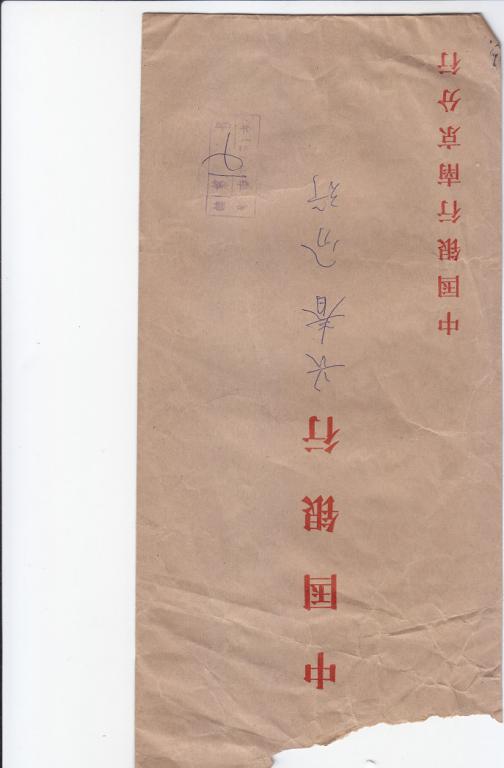 中国银行长春分行
中国银行南京分行